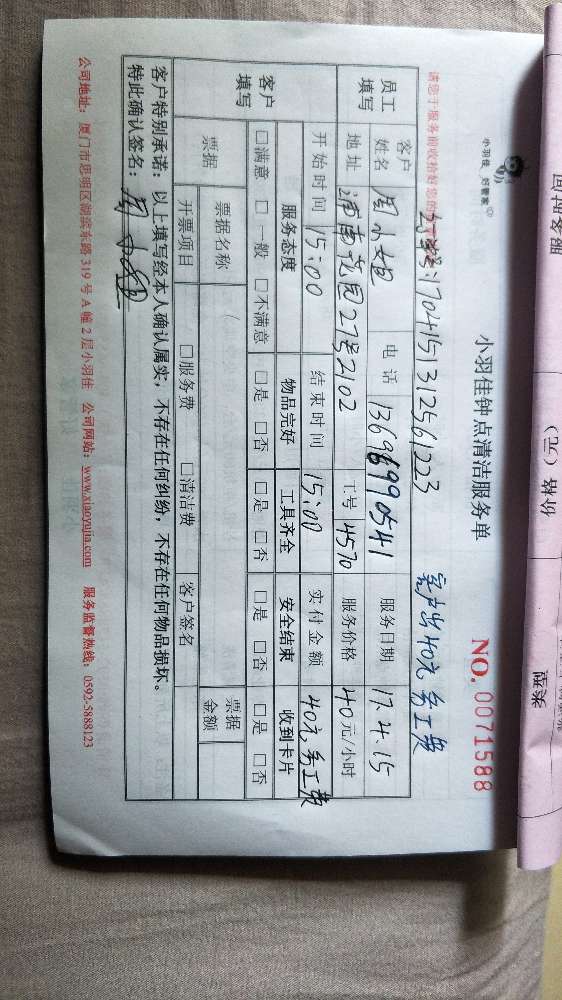 小羽佳 好管家
小羽佳钟点清洁服务单
NO. 00711588
请您于服务前收拾好您的
1704151312561223
客户出40元务工费
员工填写
客户姓名 周小姐 电话 13696990541 服务日期 17.4.15
地址 浦南花园27号2102 工号 4570 服务价格 40元/小时
客户填写
开始时间 15:00 结束时间 15:00 实付金额 40元务工费
服务态度 物品完好 工具齐全 安全结束 收到卡片
□满意 □一般 □不满意 □是 □否 □是 □否 □是 □否 □是 □否
票据 票据名称 票据金额
开票项目 □服务费 □清洁费 客户签名
客户特别承诺：以上填写经本人确认属实，不存在任何纠纷，不存在任何物品损坏。
特此确认签名：周小姐
公司地址：厦门市思明区湖滨东路319号A幢2层小羽佳 公司网站：www.xiaoyujia.com 服务监督热线：0592-5888123
服务时间
价格（元）